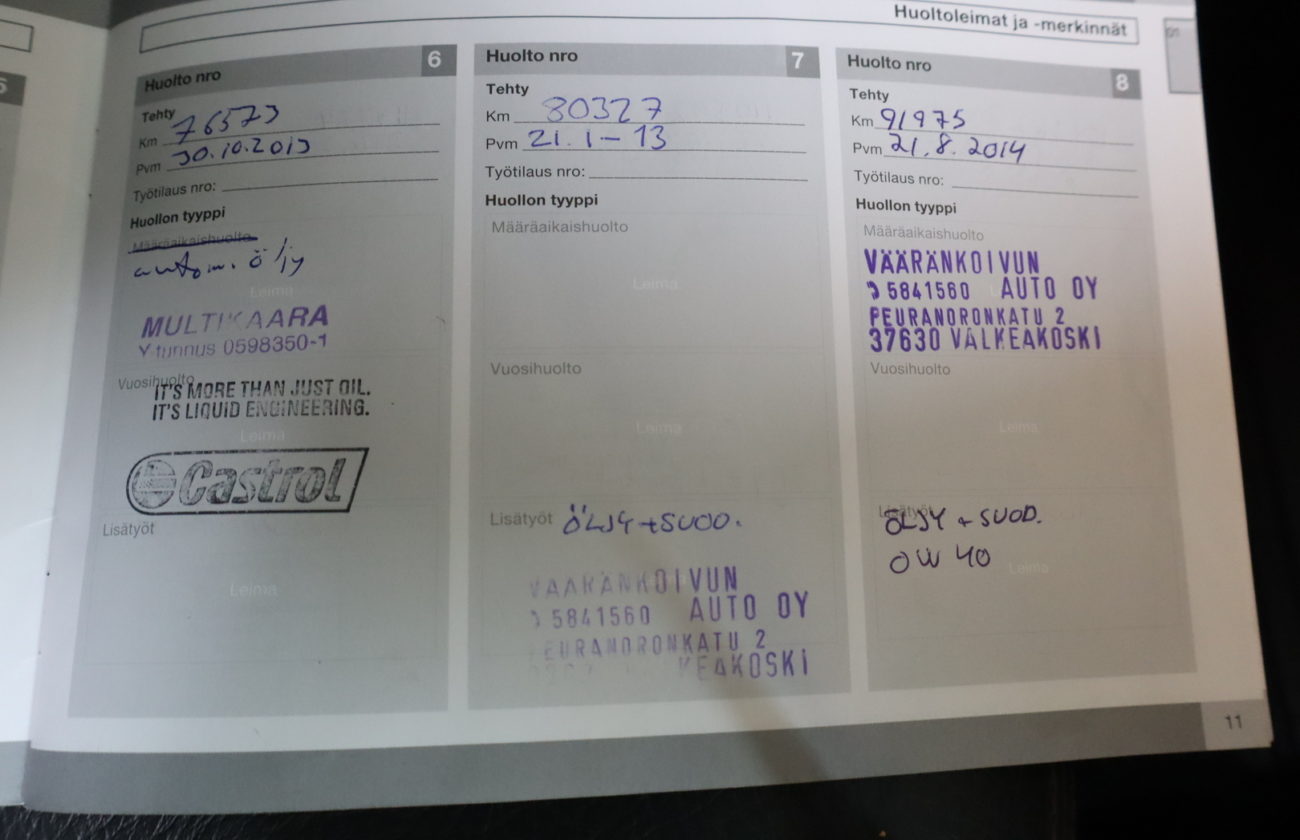 Huoltoleimat ja -merkinnät
Huolto nro 6
Tehty
Km 76573
Pvm 30.10.2013
Työtilaus nro:
Huollon tyyppi
Määräaikaishuolto
autom. öljy
Leima
MULTIKAARA
Y-tunnus 0598350-1
Vuosihuolto
IT'S MORE THAN JUST OIL.
IT'S LIQUID ENGINEERING.
Leima
Castrol
Lisätyöt
Leima
Huolto nro 7
Tehty
Km 80327
Pvm 21.1-13
Työtilaus nro:
Huollon tyyppi
Määräaikaishuolto
Leima
Vuosihuolto
Leima
Lisätyöt ÖLJY +SUOD.
VÄÄRÄNKOIVUN
5841560 AUTO OY
PEURANORONKATU 2
KEAKOSKI
Huolto nro 8
Tehty
Km 91975
Pvm 21.8.2014
Työtilaus nro:
Huollon tyyppi
Määräaikaishuolto
VÄÄRÄNKOIVUN
5841560 AUTO OY
PEURANORONKATU 2
37630 VALKEAKOSKI
Vuosihuolto
Leima
Lisätyöt
ÖLJY + SUOD.
OW 40
Leima
11